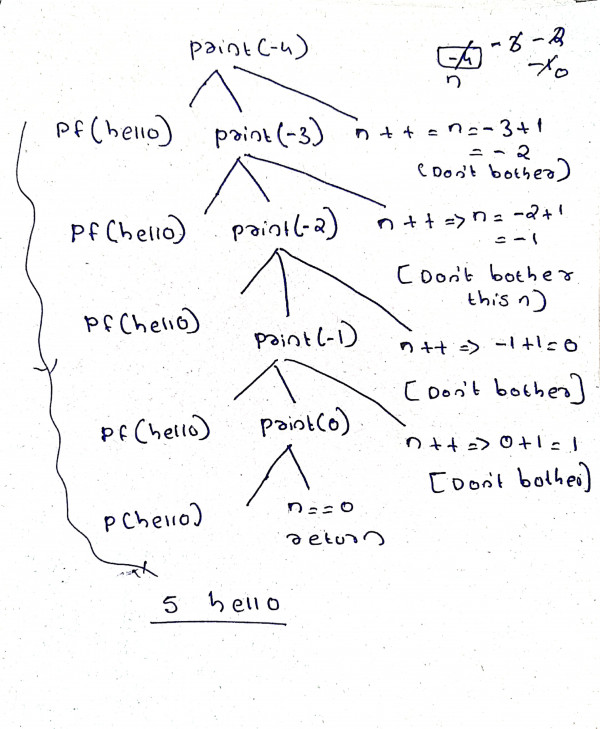 print(-4)
-4 -3 -2
-1 0
n
pf(hello) print(-3) n++ = n=-3+1
= -2
(Don't bother)
pf(hello) print(-2) n++ => n= -2+1
= -1
[Don't bother
this n)
pf(hello) print(-1) n++ => -1+1=0
[Don't bother]
pf(hello) print(0) n++ => 0+1=1
[Don't bother]
p(hello) n==0
return
5 hello